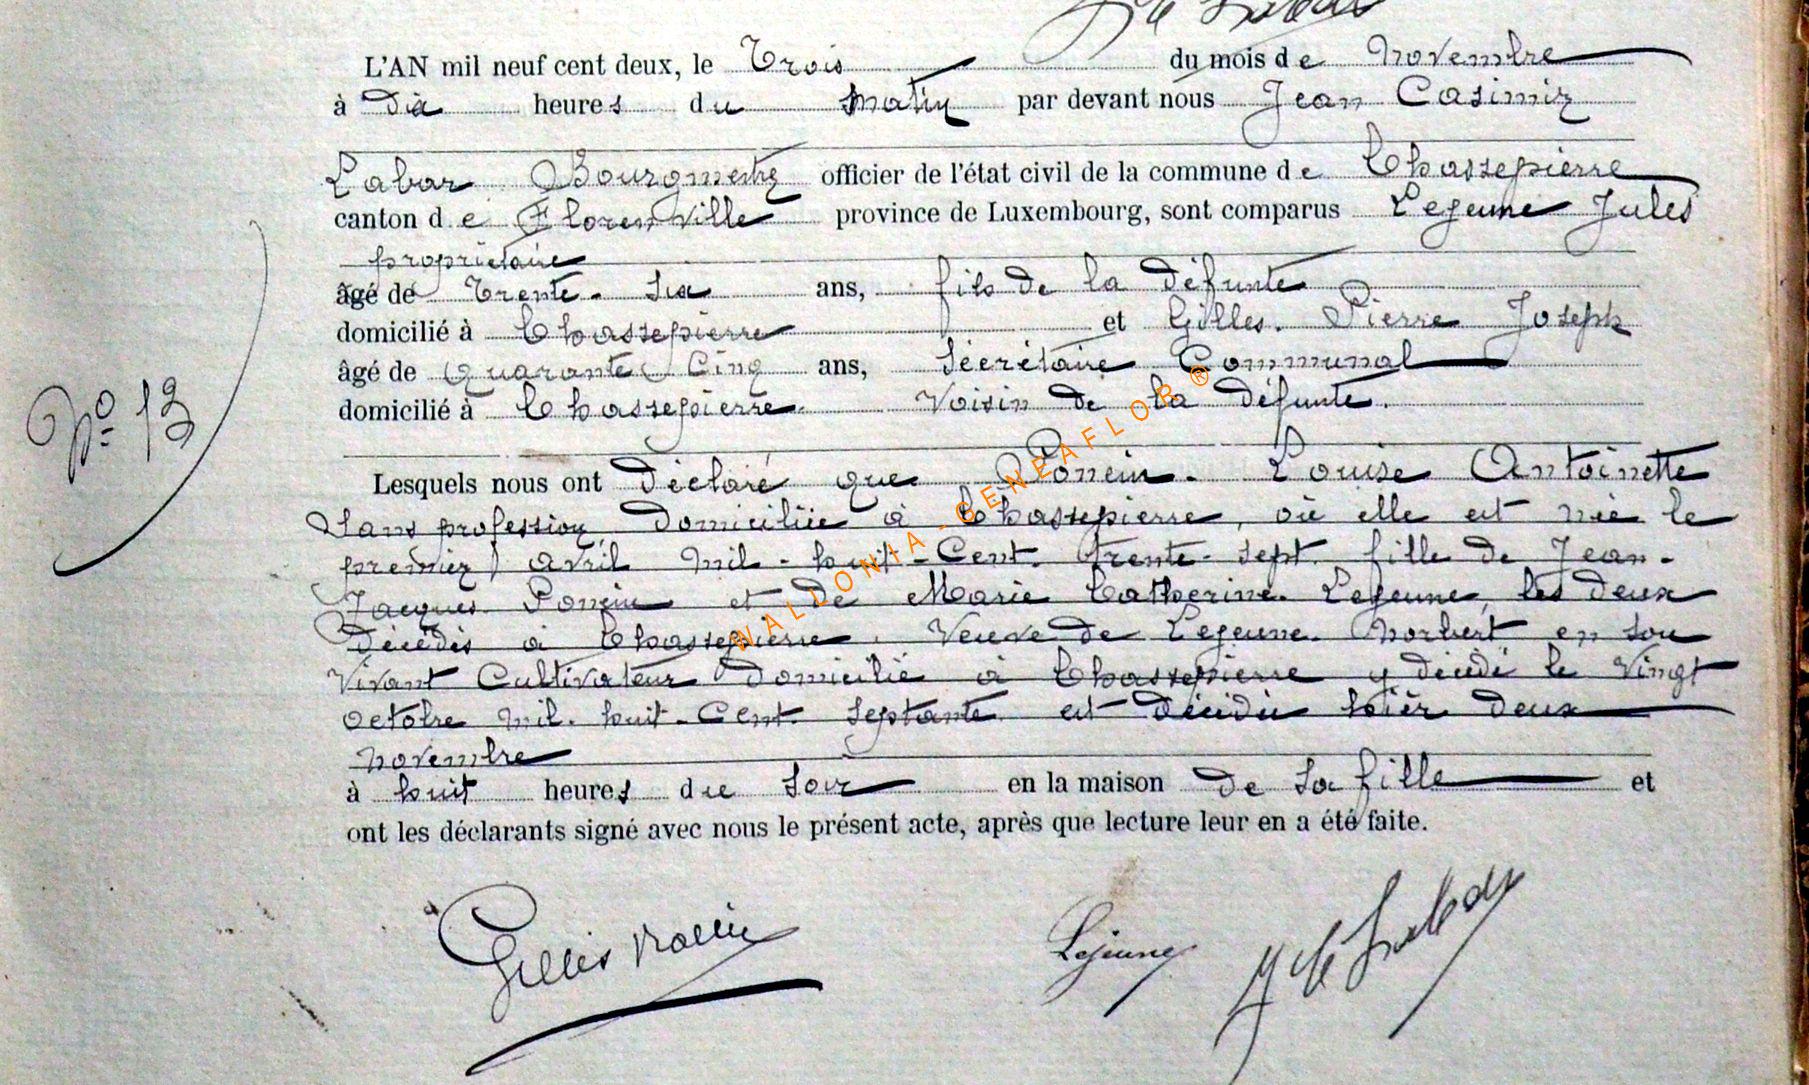 L'AN mil neuf cent deux, le Trois du mois de Novembre
à Dix heures du matin par devant nous Jean Casimir
Labar Bourgmestre officier de l'état civil de la commune de Chassepierre
canton de Florenville province de Luxembourg, sont comparus Lejeune Jules
propriétaire
âgé de Trente-six ans, fils de la défunte
domicilié à Chassepierre et Gilles. Pierre Joseph
âgé de Quarante Cinq ans, Sécrétaire Communal
domicilié à Chassepierre. Voisin de la défunte.
N° 13
Lesquels nous ont déclaré que Poncin. Louise Antoinette
Sans profession, domiciliée à Chassepierre, où elle est née le
premier avril mil-huit-Cent-trente-sept. fille de Jean-
Jacques Poncin et de Marie Catherine Lejeune, les deux
décédés à Chassepierre. Veuve de Lejeune. Norbert en son
Vivant Cultivateur domicilié à Chassepierre y décédé le Vingt
octobre mil-huit-Cent-septante est décédée hièr deux
novembre
à huit heures du soir en la maison de sa fille et
ont les déclarants signé avec nous le présent acte, après que lecture leur en a été faite.
Gilles Lejeune Labar
WALLONIA - GENEAFLOB ®